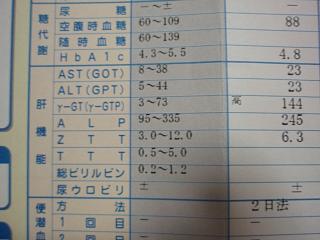 糖代謝
尿糖 －～± －
空腹時血糖 60～109 88
随時血糖 60～139
HbA1c 4.3～5.5 4.8
肝機能
AST(GOT) 8～38 23
ALT(GPT) 5～44 23
γ-GT(γ-GTP) 3～73 高 144
ALP 95～335 245
ZTT 3.0～12.0 6.3
TTT 0.5～5.0
総ビリルビン 0.2～1.2
尿ウロビリ ± ±
便潜血
方法 2日法
1回目 － －
2回目